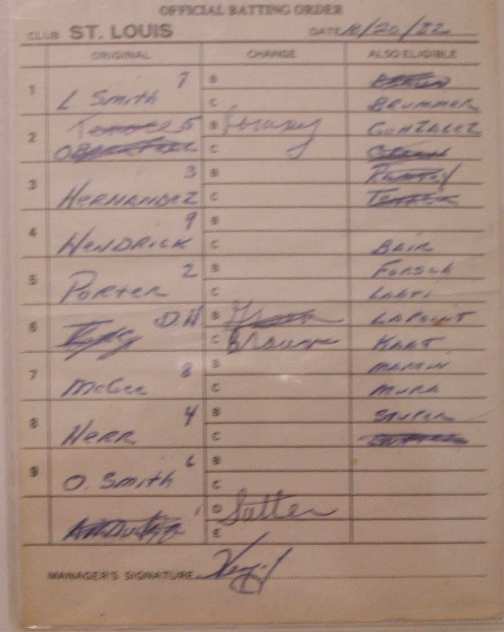 OFFICIAL BATTING ORDER
CLUB ST. LOUIS DATE 10/20/82
ORIGINAL CHANGE ALSO ELIGIBLE
1 L Smith 7 B
C BRUMMER
2 5 B Ramsey GONZALEZ
OBERKFELL C
3 HERNANDEZ 3 B RAMSEY
C
4 HENDRICK 9 B
C BAIR
5 PORTER 2 B FORSCH
C LAHTI
6 D.H B LAPOINT
C Braun KAAT
7 McGee 8 B MARTIN
C MURA
8 HERR 4 B STUPER
C
9 O. Smith 6 B
C
1 D Sutter
E
MANAGER'S SIGNATURE